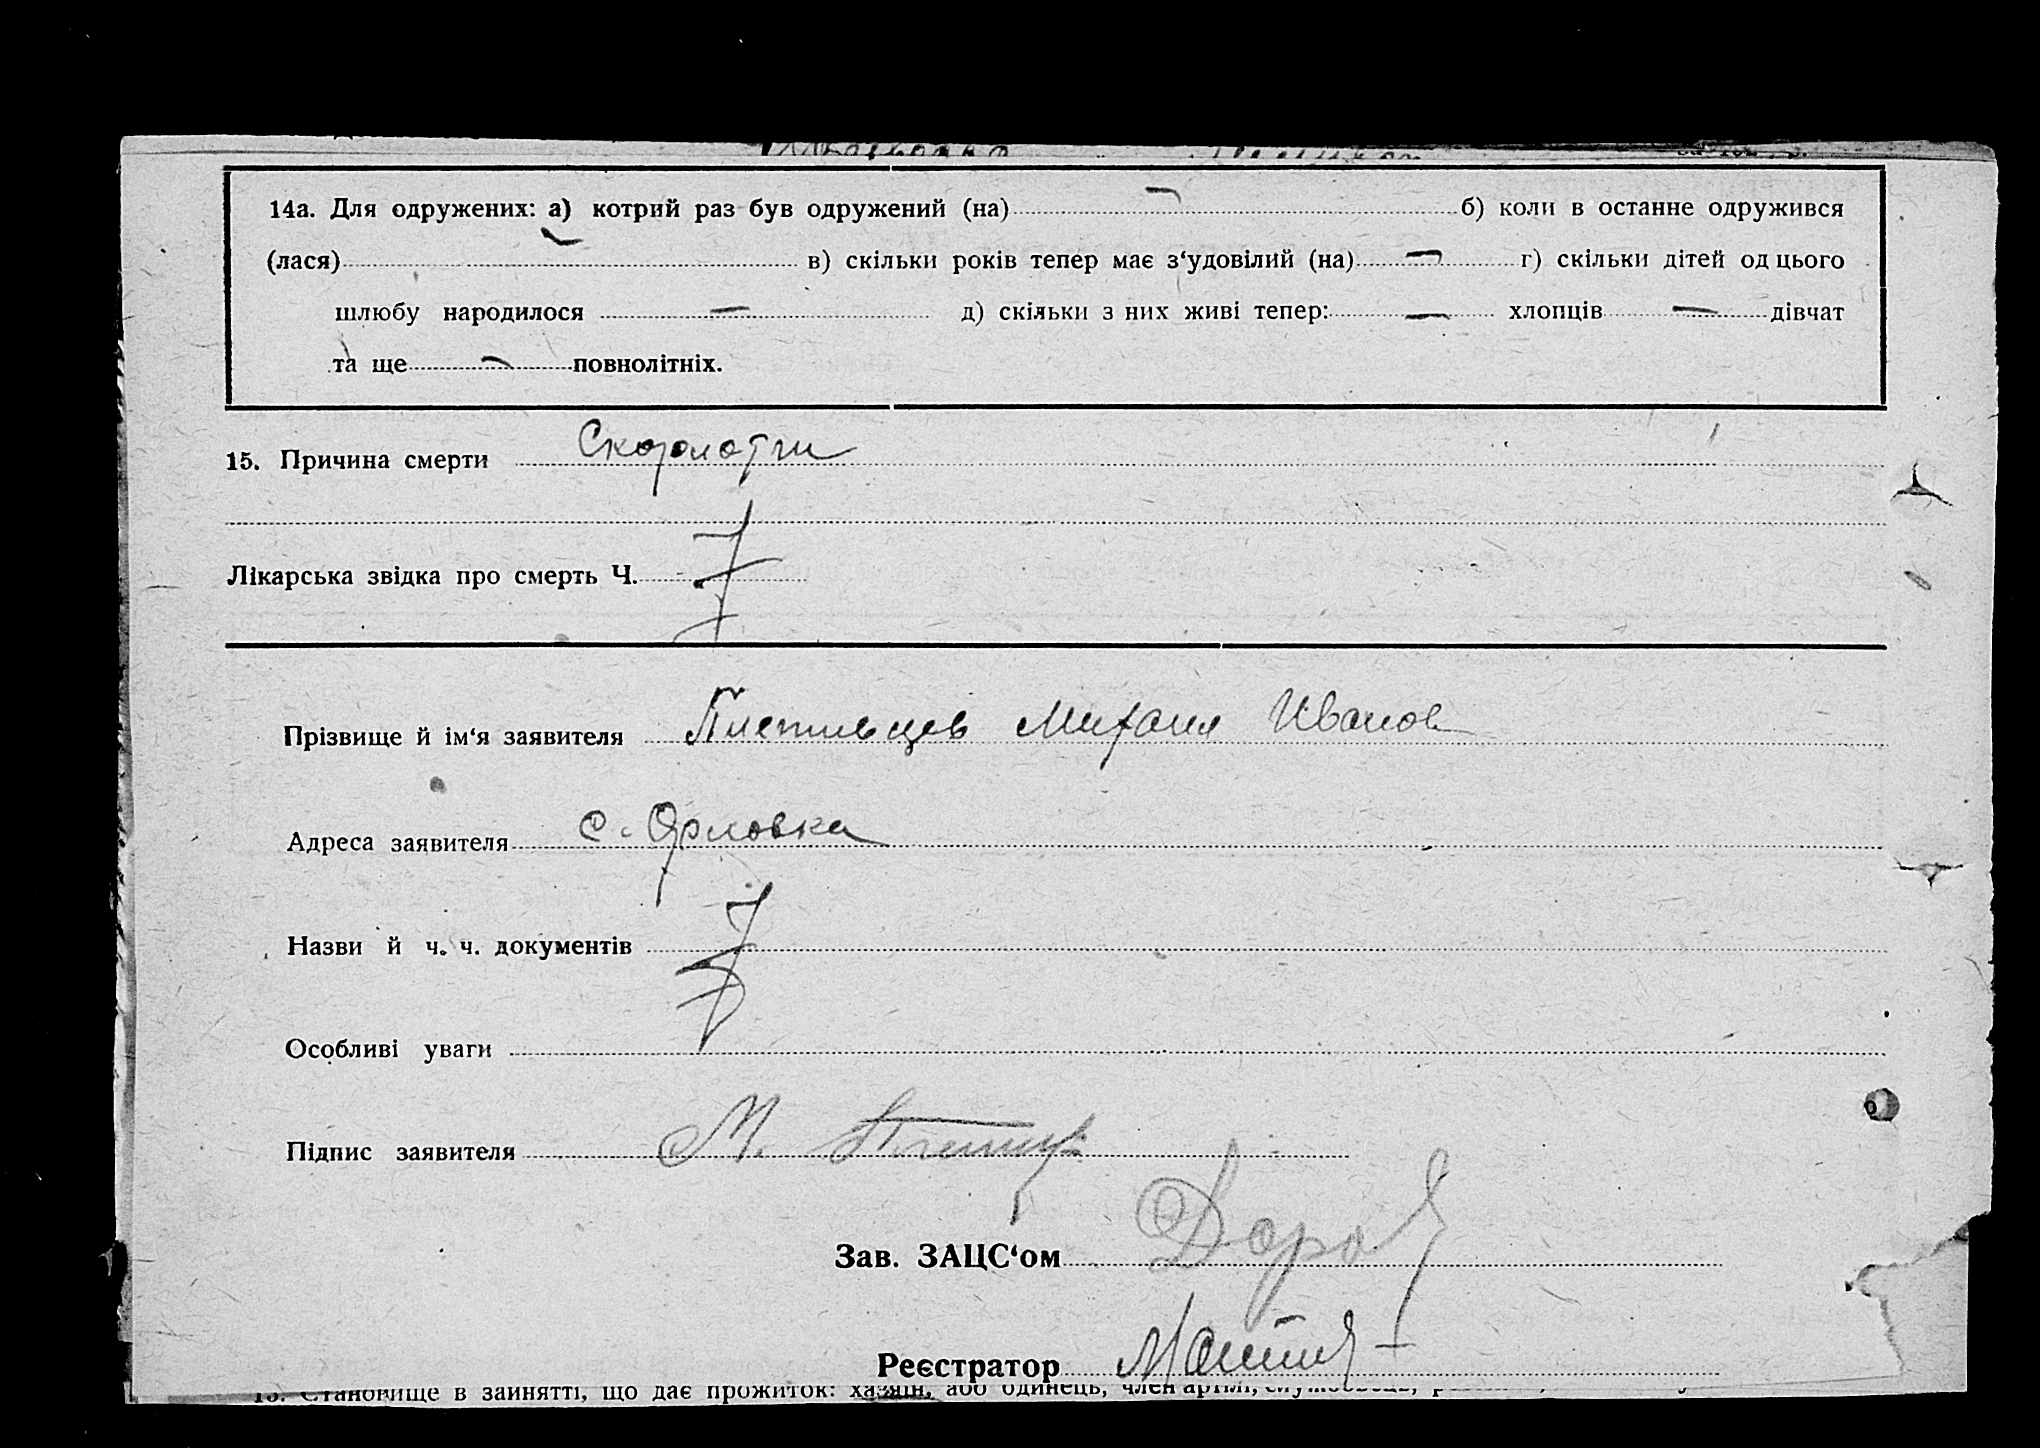 14а. Для одружених: а) котрий раз був одружений (на) — б) коли в останнє одружився
(лася) — в) скільки років тепер має з‘удовілий (на) — г) скільки дітей од цього
шлюбу народилося — д) скільки з них живі тепер: — хлопців — дівчат
та ще — повнолітніх.
15. Причина смерти Скорлотти
Лікарська звідка про смерть Ч.
Прізвище й ім‘я заявителя Михаил Иванов
Адреса заявителя с. Орловка
Назви й ч. ч. документів
Особливі уваги
Підпис заявителя М.
Зав. ЗАЦС‘ом
Реєстратор
13. Становище в занятті, що дає прожиток: хазяїн, або одинець, член артілі,